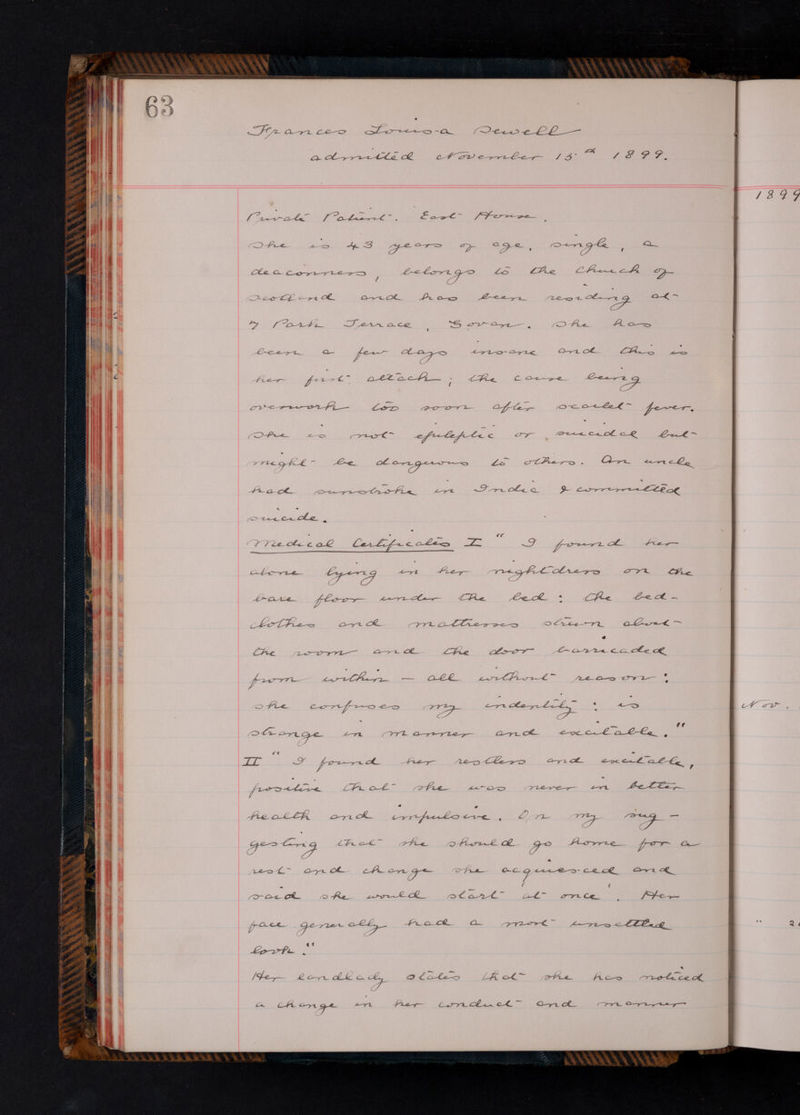 63
Frances Louisa Sewell
admitted November 15th 1899.
1899
Private Patient. East House.
She is 43 years of age, single, a
deaconness, belongs to the Church of
Scotland and has been residing at
7 Park Terrace, Govan. She has
been a few days insane and this is
her first attack; the cause being
overwork too soon after scarlet fever.
She is not epileptic or suicidal but
might be dangerous to others. An uncle
had sunstroke in India & committed
suicide.
Medical Certificates I "I found her
alone lying in her nightdress on the
bare floor under the bed: the bed-
clothes and mattresses strewn about
the room and the door barricaded
from within — all without reason:
she confuses my indentity: is
Nov.
strange in manner and excitable."
II "I found her restless and excitable,
positive that she was never in better
health and impulsive. On my sug-
gesting that she should go home for a
rest and change she acquiesced and
said she would start at once. Her
face generally had a most unsettled
look."
Her landlady states that she has noticed
a change in her conduct and manner